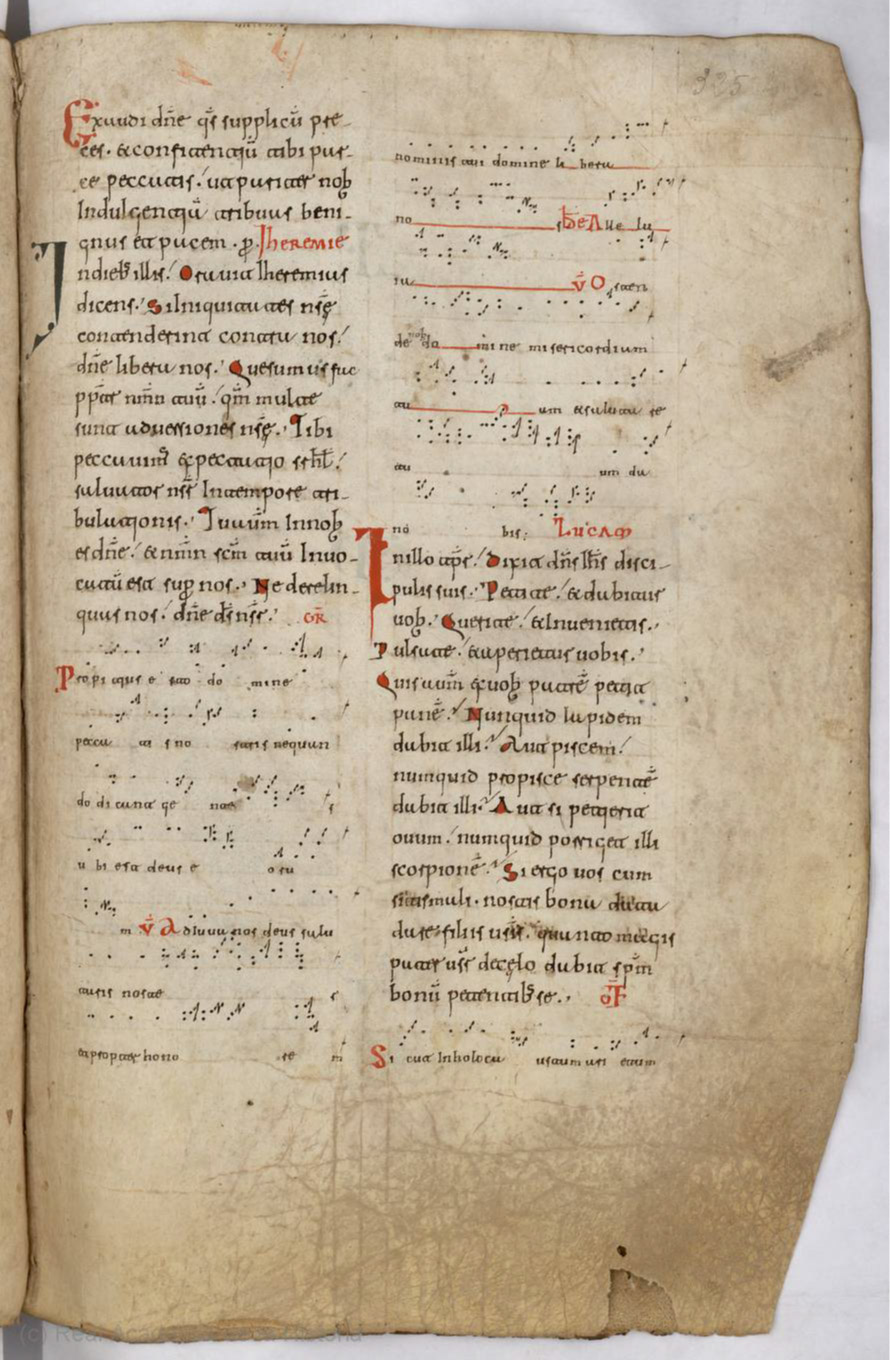 Exaudi dn̄e q̄s supplicū pre-
ces. & confitentiū tibi par-
ce peccatis. ut pariter nob
Indulgentiā tribuas beni-
gnus et pacem. p̱. Jheremie
In dieb illis. Orauit Iheremias
dicens. Si Iniquitates nr̄ę
contenderint contra nos.
dn̄e libera nos. Quesumus fac
ppt̄er nm̄n tuū. qm̄ multę
sunt aduersiones nr̄ę. Tibi
peccauim᷒ expectatio isrl̄.
saluator nr̄ Intempore tri-
bulationis. Tu aūm Innob
es dn̄e. & nm̄n scm̄ tuū Inuo-
catū est sup nos. Ne derelin-
quas nos. dn̄e ds̄ nr̄. GR̄
Propi tius e sto do mine
pecca ti s no stris nequan
do di cant ge ntes
u bi est deus e o ru
m V̄ Adiuua nos deus salu
taris noste r
& propter hono re m
nominis tui domine li bera
no s. De Alle lu
ia V̄ Osten
de nob do mi ne misericordiam
tu am & saluta re
tu um da
no bis; LUCAM
In illo tp̄r. Dixit dn̄s Ihs̄ disci-
pulis suis. Petite. & dabitur
uob. Querite. & Inuenietis.
Pulsate. & aperietur uobis.
Quis aūm ex uob patrē petit
panē. Nunquid lapidem
dabit illi. Aut piscem.
numquid propisce serpentē
dabit illi. Aut si petierit
ouum. numquid porriget illi
scorpionē. Si ergo uos cum
sitis mali. nostis bona data
dare filiis ur̄is. quanto magis
pater ur̄ decęlo dabit spm̄
bonū petentib se. OF̄
Si cut Inholocau staum ari etum
325